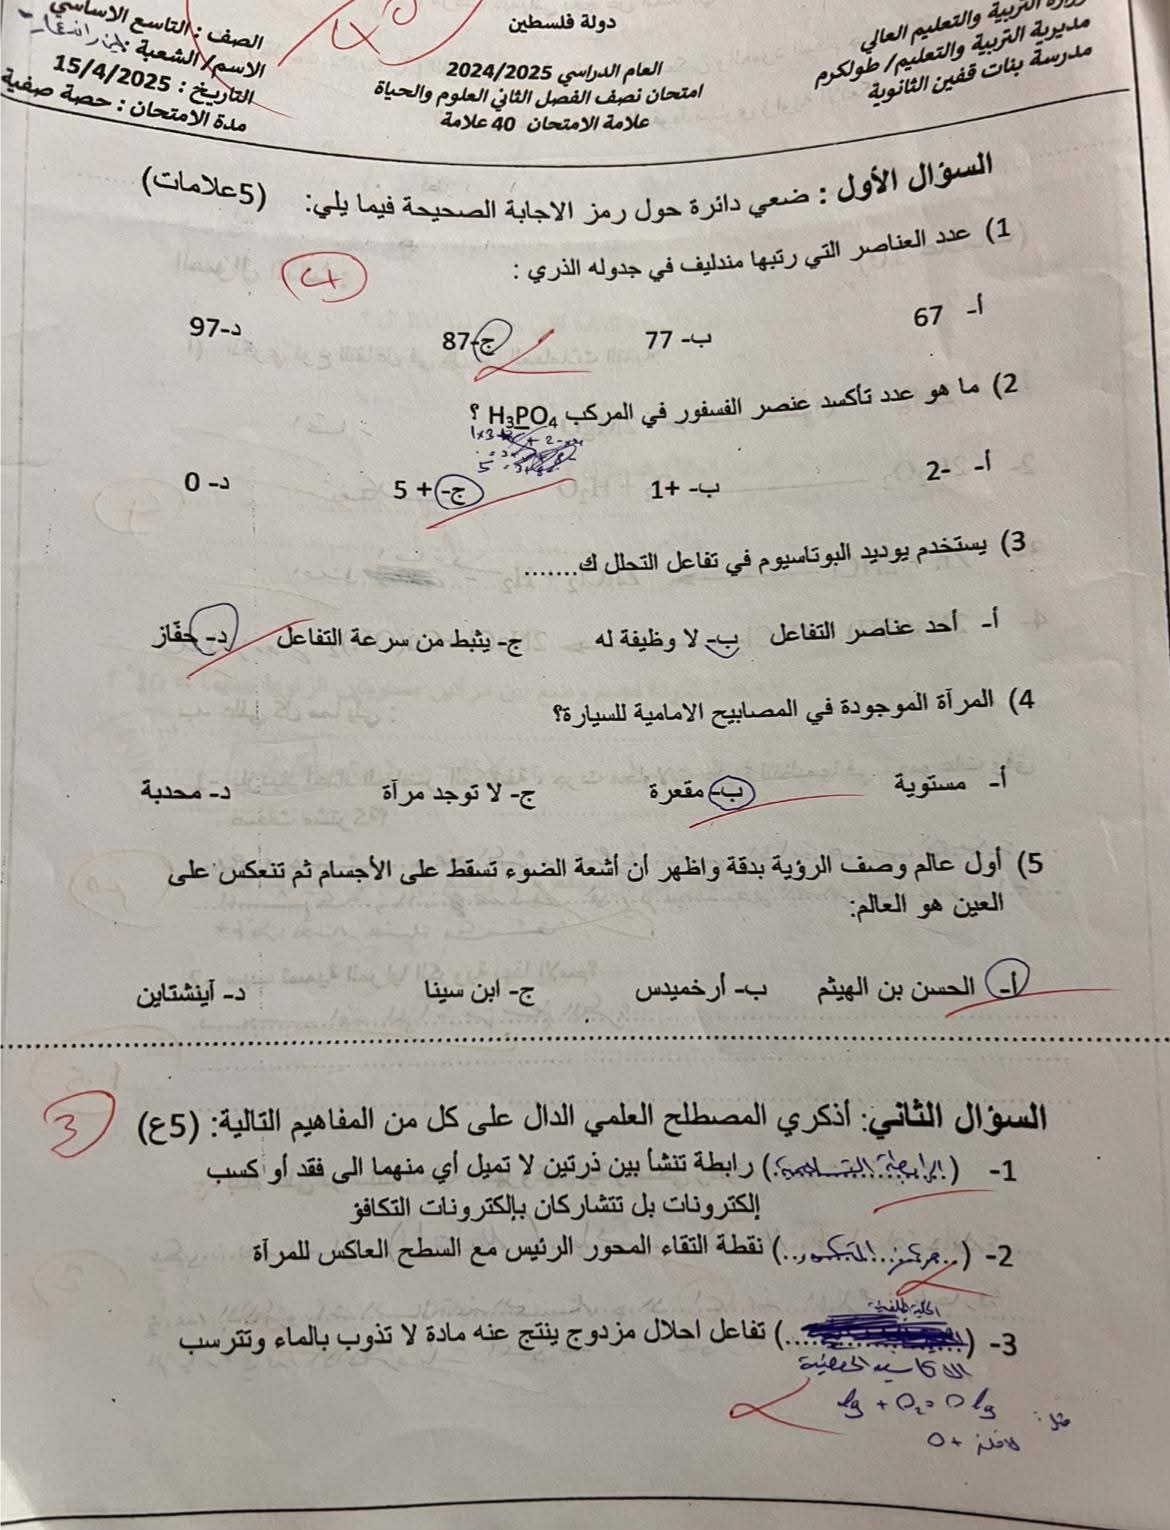 وزارة التربية والتعليم العالي
مديرية التربية والتعليم/ طولكرم
مدرسة بنات قفين الثانوية
دولة فلسطين
العام الدراسي 2024/2025
امتحان نصف الفصل الثاني العلوم والحياة
علامة الامتحان 40 علامة
الصف : التاسع الاساسي
الاسم/ الشعبة :
التاريخ : 15/4/2025
مدة الامتحان : حصة صفية
السؤال الأول : ضعي دائرة حول رمز الاجابة الصحيحة فيما يلي: (5علامات)
4
1) عدد العناصر التي رتبها مندليف في جدوله الذري :
أ- 67 ب- 77 ج-87 د-97
2) ما هو عدد تأكسد عنصر الفسفور في المركب H3PO4 ؟
أ- -2 ب- +1 ج- + 5 د- 0
3) يستخدم يوديد البوتاسيوم في تفاعل التحلل ك.......
أ- أحد عناصر التفاعل ب- لا وظيفة له ج- يثبط من سرعة التفاعل د- حفّاز
4) المرآة الموجودة في المصابيح الامامية للسيارة؟
أ- مستوية ب- مقعرة ج- لا توجد مرآة د- محدبة
5) أول عالم وصف الرؤية بدقة واظهر أن أشعة الضوء تسقط على الأجسام ثم تنعكس على
العين هو العالم:
أ- الحسن بن الهيثم ب- أرخميدس ج- ابن سينا د- آينشتاين
السؤال الثاني: أذكري المصطلح العلمي الدال على كل من المفاهيم التالية: (5ع)
3
1- (الرابطة التساهمية) رابطة تنشأ بين ذرتين لا تميل أي منهما الى فقد أو كسب
إلكترونات بل تتشاركان بإلكترونات التكافؤ
2- (..مركز التكور..) نقطة التقاء المحور الرئيس مع السطح العاكس للمرآة
3- (....) تفاعل احلال مزدوج ينتج عنه مادة لا تذوب بالماء وتترسب
الاكاسيد الحمضية
مثل: